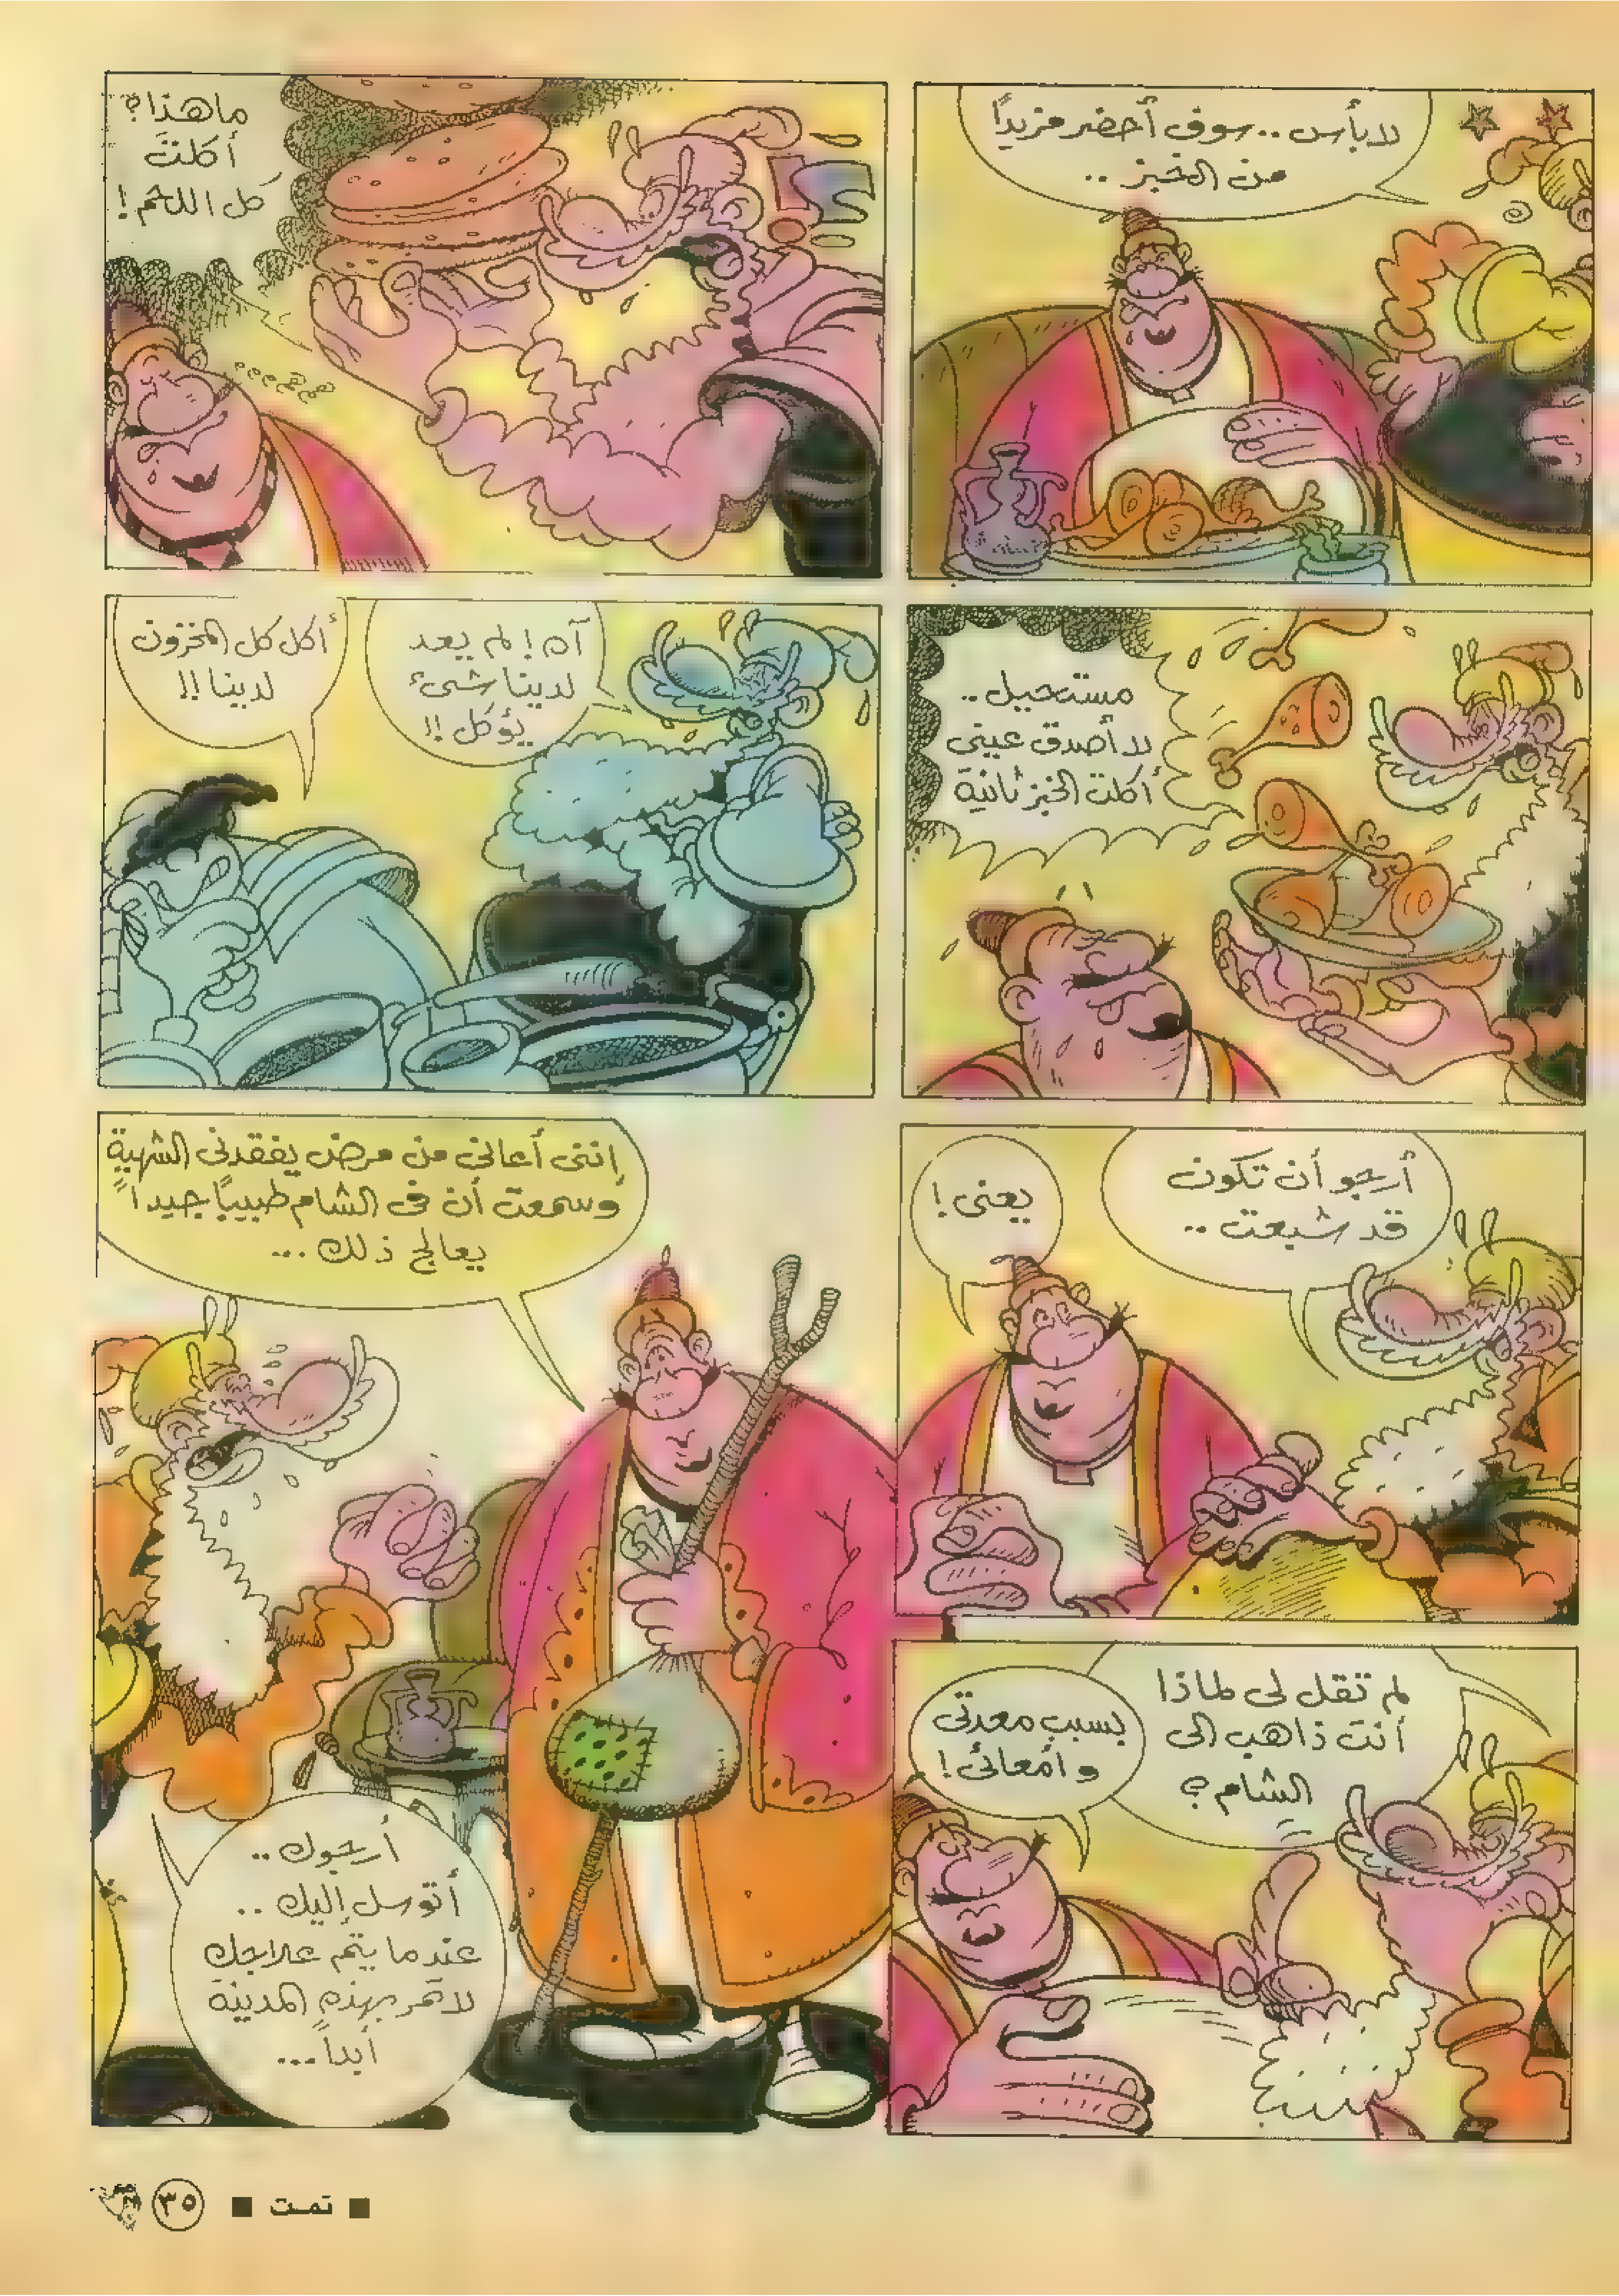 لا بأس .. سوف أحضر مزيداً
من الخبز ..
ما هذا؟
أكلتَ
كل اللحم !
مستحيل ..
لا أصدق عيني
أكلت الخبز ثانية
آه ! لم يعد
لدينا شىء
يؤكل !!
أكل كل المخزون
لدينا !!
أرجو أن تكون
قد شبعت ..
يعنى !
لم تقل لى لماذا
أنت ذاهب الى
الشام ؟
بسبب معدتى
وأمعائى !
إننى أعانى من مرض يفقدنى الشهية
وسمعت أن فى الشام طبيبًا جيداً
يعالج ذلك ...
أرجوك ..
أتوسل إليك ..
عندما يتم علاجك
لا تمر بهذه المدينة
أبداً ...
■ تمـت ■ ٣٥